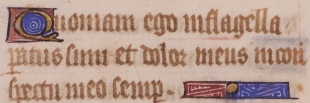 Quoniam ego in flagella
paratus sum et dolor meus in con
spectu meo semp.